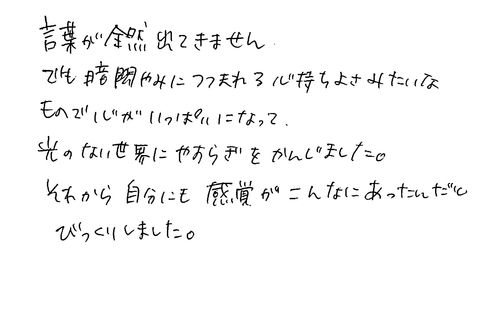 言葉が全然出てきません。
でも暗闇やみにつつまれる心持ちよさみたいな
もので心がいっぱいになって、
光のない世界にやすらぎをかんじました。
それから自分にも感覚がこんなにあったんだと
びっくりしました。